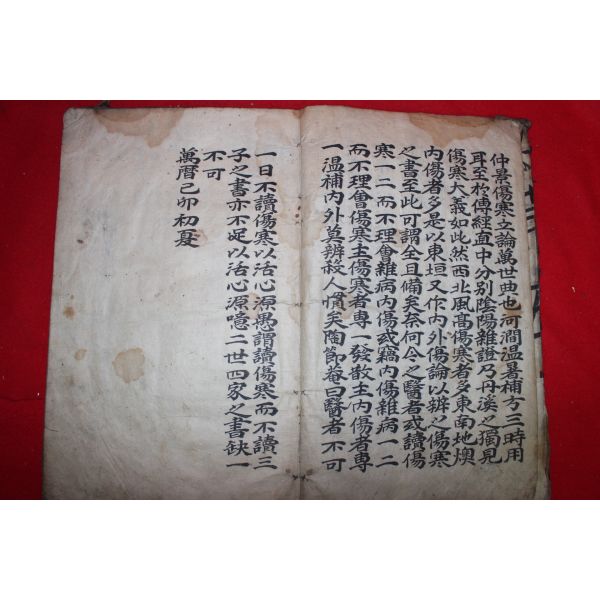 仲景傷寒立論萬世典也河澗温暑補方三時用
耳至於傳經直中分別陰陽雜證乃丹溪之獨見
傷寒大義如此然西北風高傷寒者多東南地燠
內傷者多是以東垣又作內外傷論以辨之傷寒
之書至此可謂全且備矣奈何今之醫者或讀傷
寒一二而不理會雜病內傷或竊內傷雜病一二
而不理會傷寒主傷寒者專一發散主內傷者專
一温補內外莫辨殺人慣矣陶節菴曰醫者不可
一日不讀傷寒以活心源愚謂讀傷寒而不讀三
子之書亦不足以活心源噫二世四家之書缺一
不可
萬曆己卯初夏